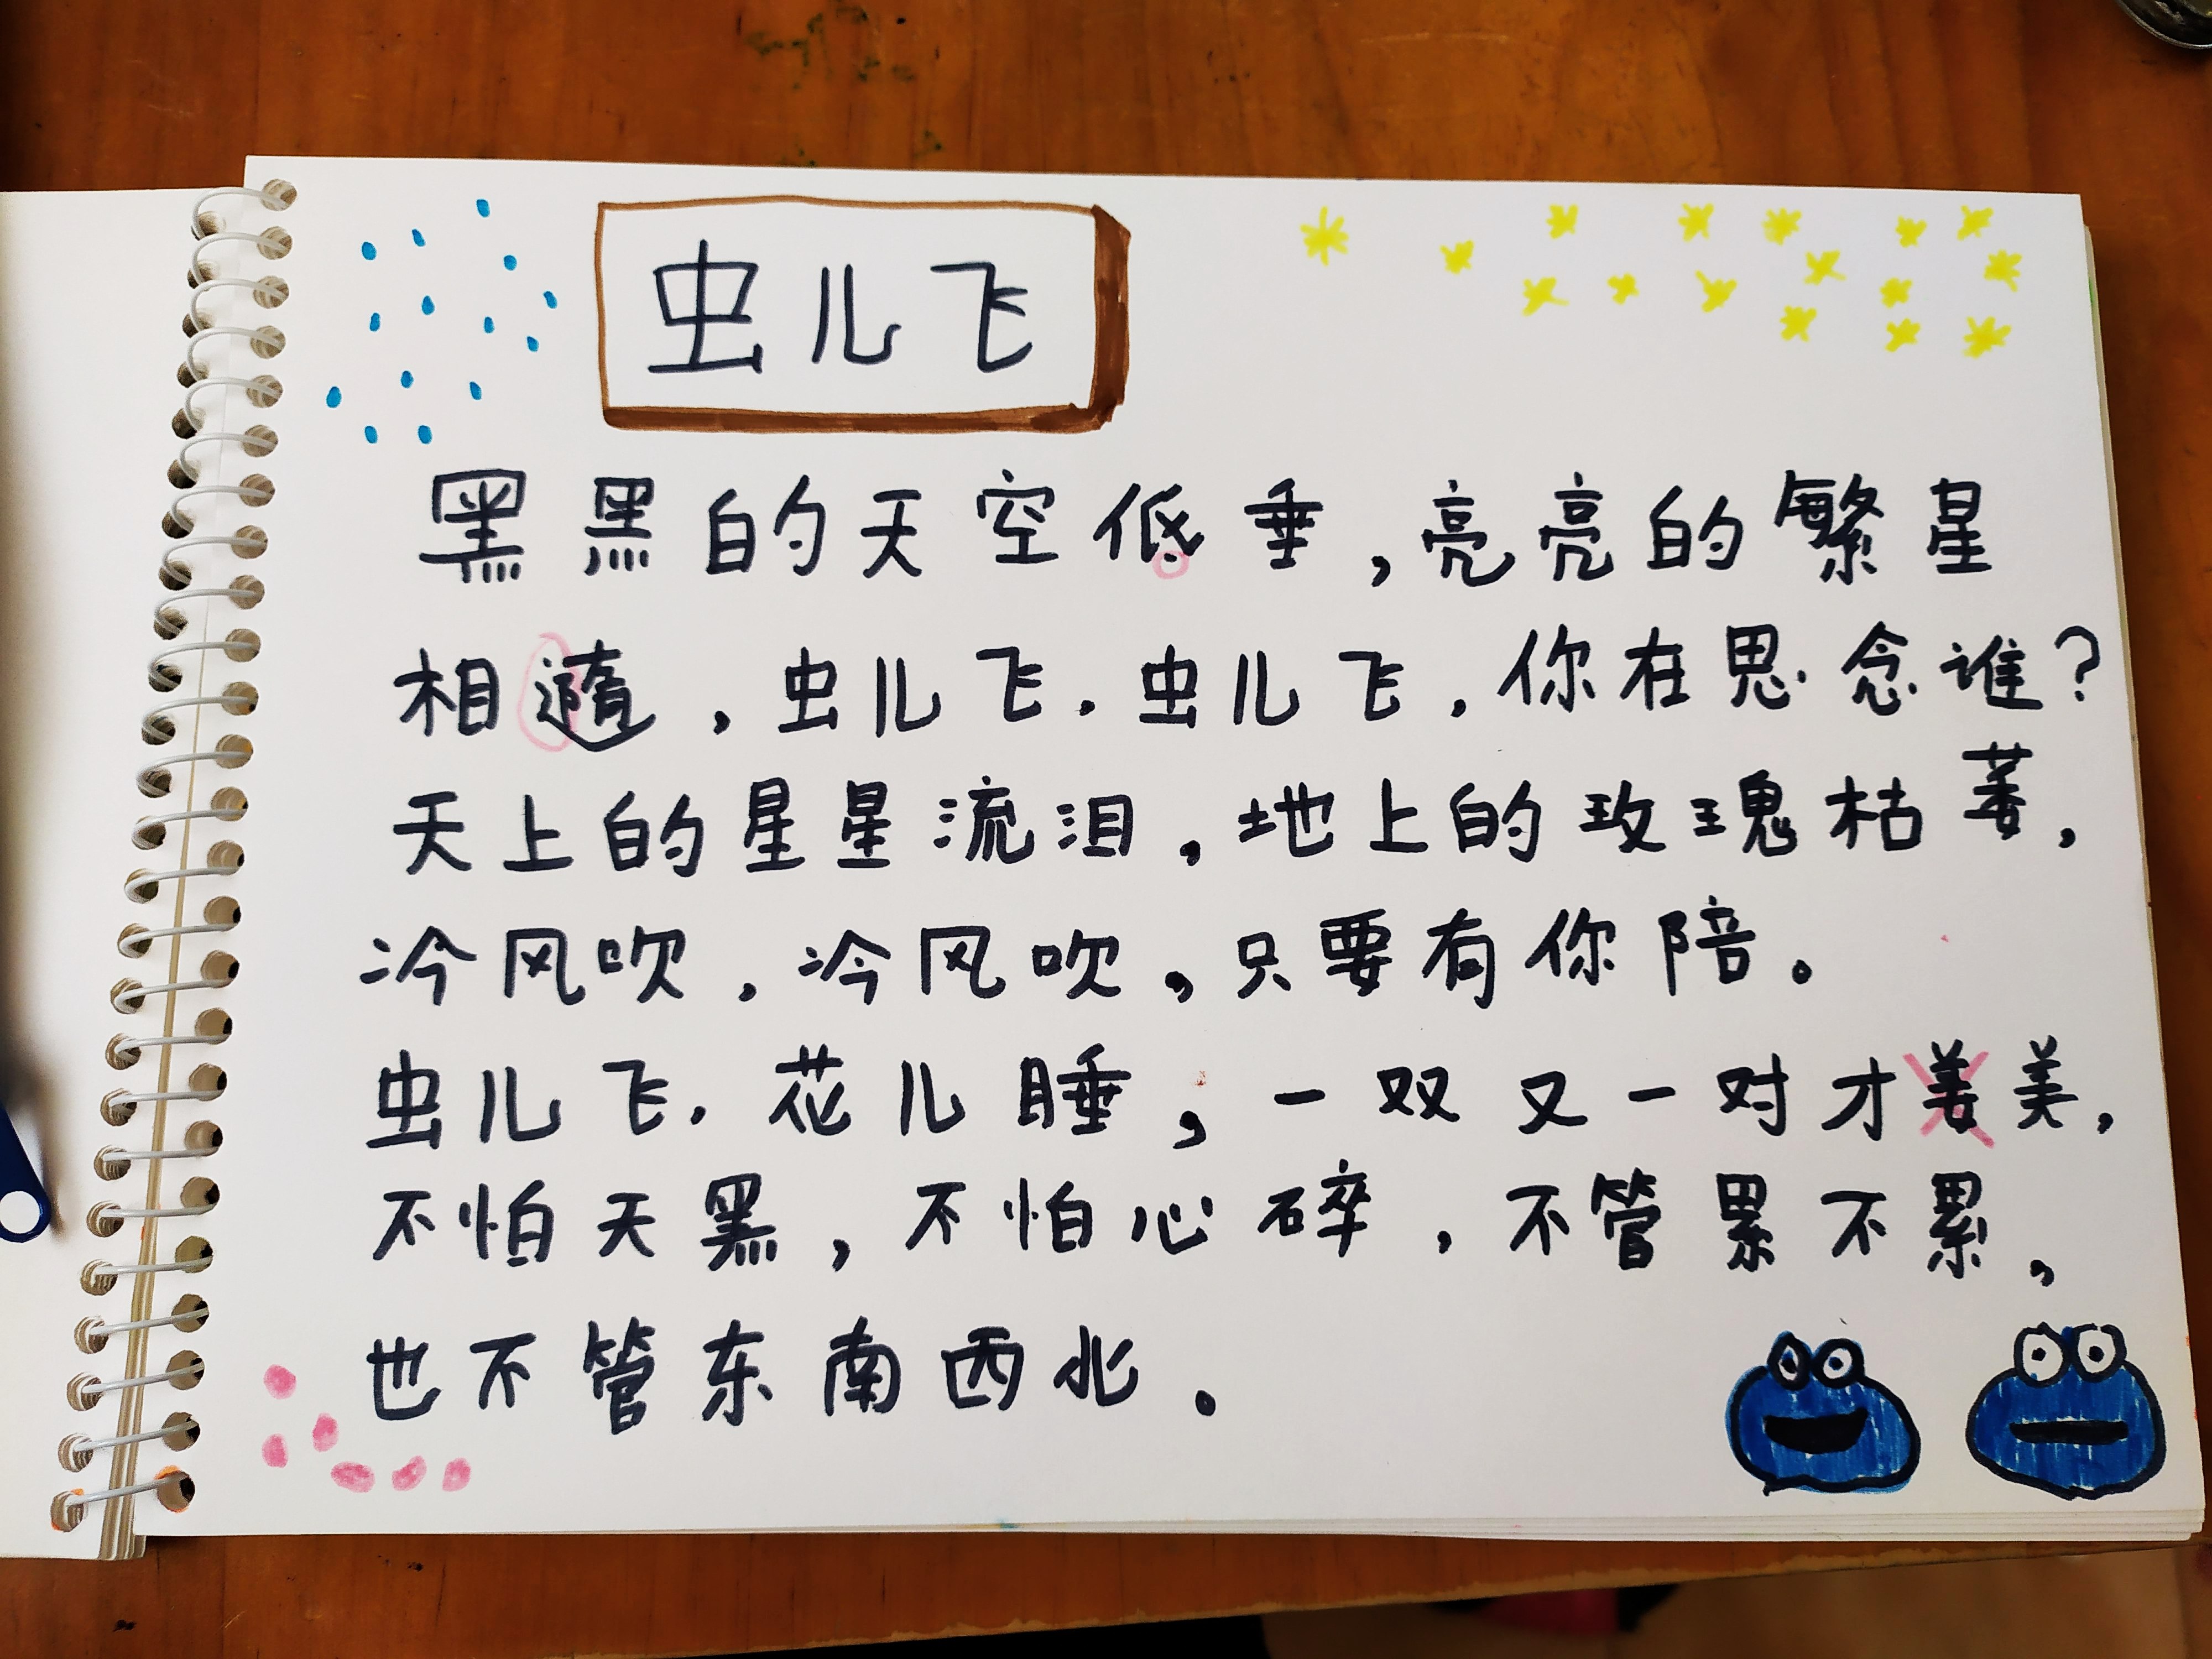 虫儿飞
黑黑的天空低垂,亮亮的繁星
相随,虫儿飞,虫儿飞,你在思念谁?
天上的星星流泪,地上的玫瑰枯萎,
冷风吹,冷风吹,只要有你陪。
虫儿飞,花儿睡,一双又一对才美,
不怕天黑,不怕心碎,不管累不累,
也不管东南西北。